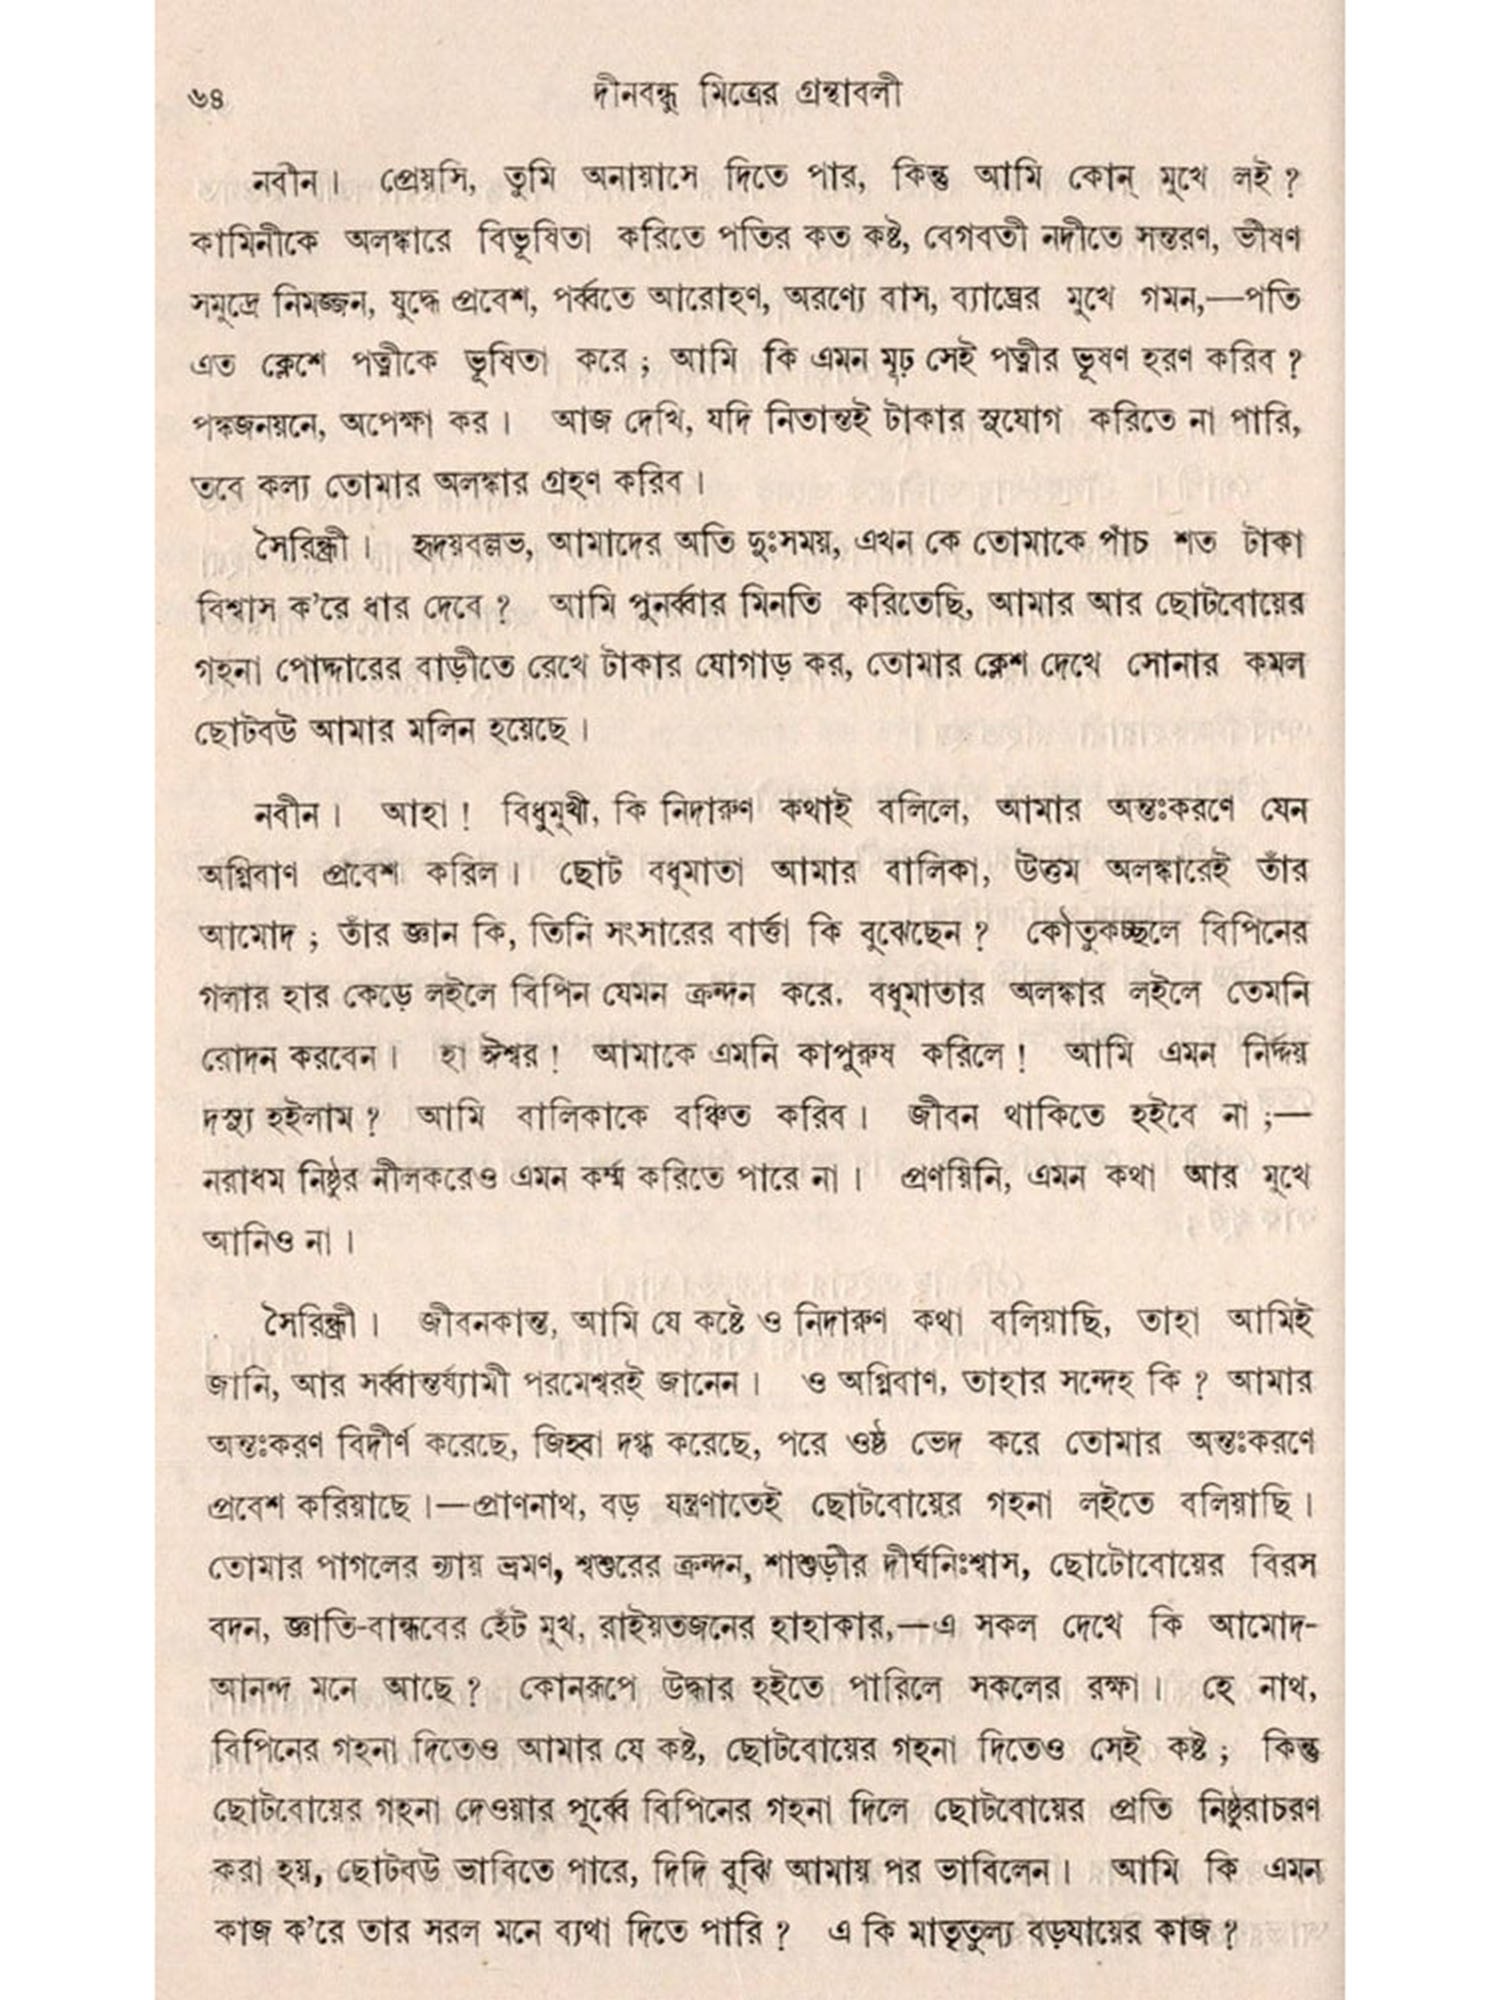 ৬৪
দীনবন্ধু মিত্রের গ্রন্থাবলী
নবীন। প্রেয়সি, তুমি অনায়াসে দিতে পার, কিন্তু আমি কোন্ মুখে লই?
কামিনীকে অলঙ্কারে বিভূষিতা করিতে পতির কত কষ্ট, বেগবতী নদীতে সন্তরণ, ভীষণ
সমুদ্রে নিমজ্জন, যুদ্ধে প্রবেশ, পর্ব্বতে আরোহণ, অরণ্যে বাস, ব্যাঘ্রের মুখে গমন,—পতি
এত ক্লেশে পত্নীকে ভূষিতা করে; আমি কি এমন মূঢ় সেই পত্নীর ভূষণ হরণ করিব?
পঙ্কজনয়নে, অপেক্ষা কর। আজ দেখি, যদি নিতান্তই টাকার সুযোগ করিতে না পারি,
তবে কল্য তোমার অলঙ্কার গ্রহণ করিব।
সৈরিন্ধ্রী। হৃদয়বল্লভ, আমাদের অতি দুঃসময়, এখন কে তোমাকে পাঁচ শত টাকা
বিশ্বাস ক'রে ধার দেবে? আমি পুনর্ব্বার মিনতি করিতেছি, আমার আর ছোটবোয়ের
গহনা পোদ্দারের বাড়ীতে রেখে টাকার যোগাড় কর, তোমার ক্লেশ দেখে সোনার কমল
ছোটবউ আমার মলিন হয়েছে।
নবীন। আহা! বিধুমুখী, কি নিদারুণ কথাই বলিলে, আমার অন্তঃকরণে যেন
অগ্নিবাণ প্রবেশ করিল। ছোট বধুমাতা আমার বালিকা, উত্তম অলঙ্কারেই তাঁর
আমোদ; তাঁর জ্ঞান কি, তিনি সংসারের বার্ত্তা কি বুঝেছেন? কৌতুকচ্ছলে বিপিনের
গলার হার কেড়ে লইলে বিপিন যেমন ক্রন্দন করে. বধুমাতার অলঙ্কার লইলে তেমনি
রোদন করবেন। হা ঈশ্বর! আমাকে এমনি কাপুরুষ করিলে! আমি এমন নির্দ্দয়
দস্যু হইলাম? আমি বালিকাকে বঞ্চিত করিব। জীবন থাকিতে হইবে না;—
নরাধম নিষ্ঠুর নীলকরেও এমন কর্ম্ম করিতে পারে না। প্রণয়িনি, এমন কথা আর মুখে
আনিও না।
সৈরিন্ধ্রী। জীবনকান্ত, আমি যে কষ্টে ও নিদারুণ কথা বলিয়াছি, তাহা আমিই
জানি, আর সর্ব্বান্তর্য্যামী পরমেশ্বরই জানেন। ও অগ্নিবাণ, তাহার সন্দেহ কি? আমার
অন্তঃকরণ বিদীর্ণ করেছে, জিহ্বা দগ্ধ করেছে, পরে ওষ্ঠ ভেদ করে তোমার অন্তঃকরণে
প্রবেশ করিয়াছে।—প্রাণনাথ, বড় যন্ত্রণাতেই ছোটবোয়ের গহনা লইতে বলিয়াছি।
তোমার পাগলের ন্যায় ভ্রমণ, শ্বশুরের ক্রন্দন, শাশুড়ীর দীর্ঘনিঃশ্বাস, ছোটোবোয়ের বিরস
বদন, জ্ঞাতি-বান্ধবের হেঁট মুখ, রাইয়তজনের হাহাকার,—এ সকল দেখে কি আমোদ-
আনন্দ মনে আছে? কোনরূপে উদ্ধার হইতে পারিলে সকলের রক্ষা। হে নাথ,
বিপিনের গহনা দিতেও আমার যে কষ্ট, ছোটবোয়ের গহনা দিতেও সেই কষ্ট; কিন্তু
ছোটবোয়ের গহনা দেওয়ার পূর্ব্বে বিপিনের গহনা দিলে ছোটবোয়ের প্রতি নিষ্ঠুরাচরণ
করা হয়, ছোটবউ ভাবিতে পারে, দিদি বুঝি আমায় পর ভাবিলেন। আমি কি এমন
কাজ ক'রে তার সরল মনে ব্যথা দিতে পারি? এ কি মাতৃতুল্য বড়যায়ের কাজ?